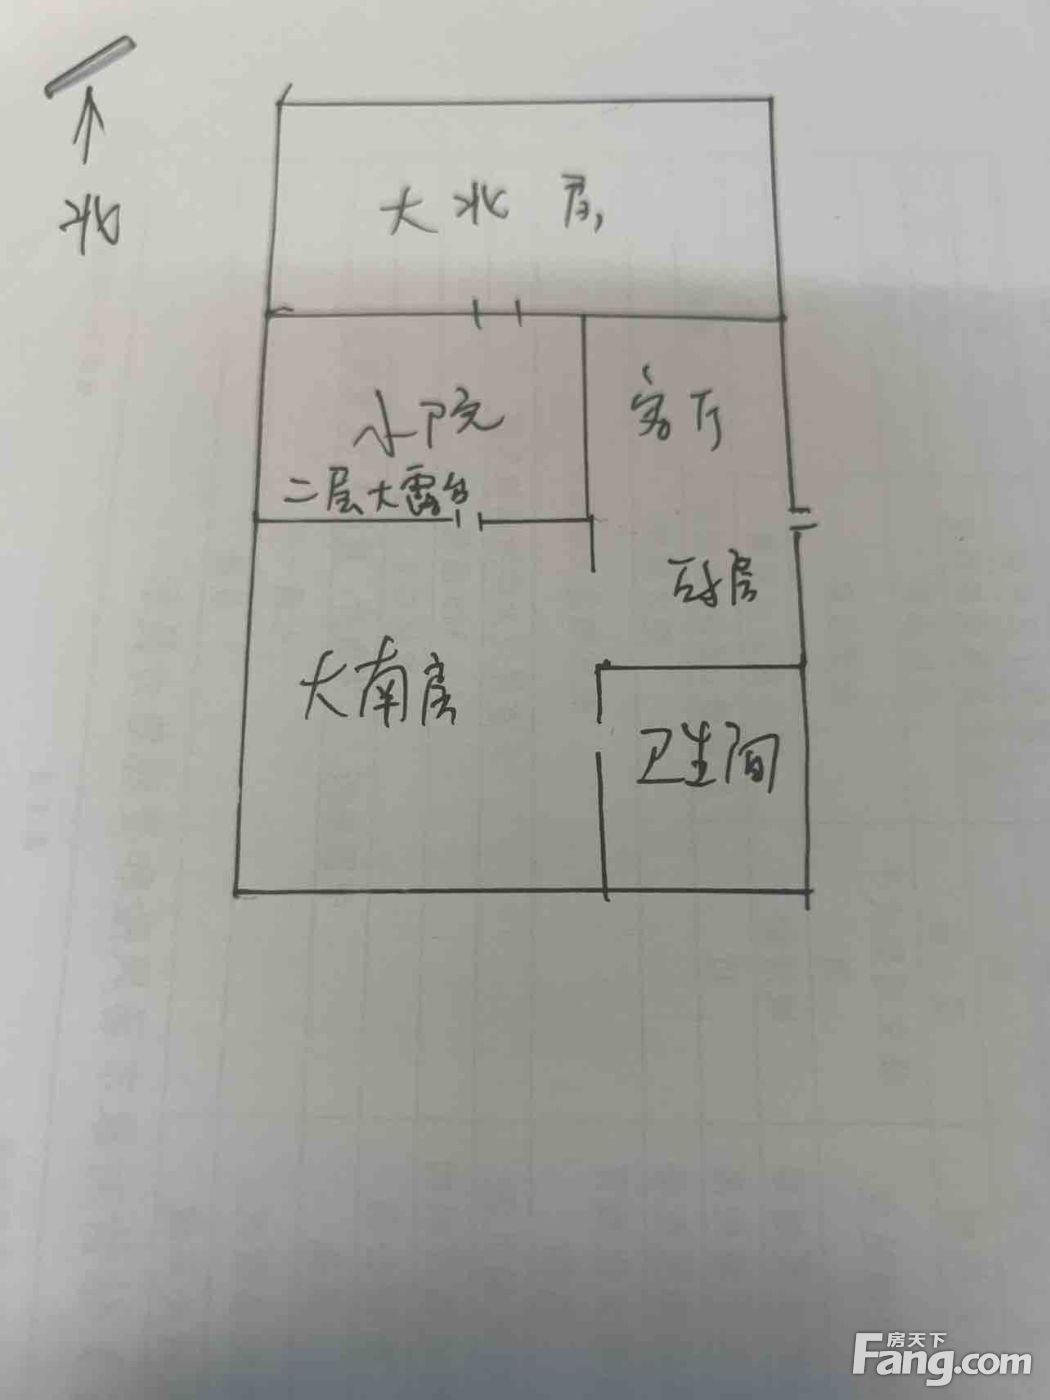 北
大北房
小院
客厅
二层大露台
厨房
大南房
卫生间
房天下
Fang.com